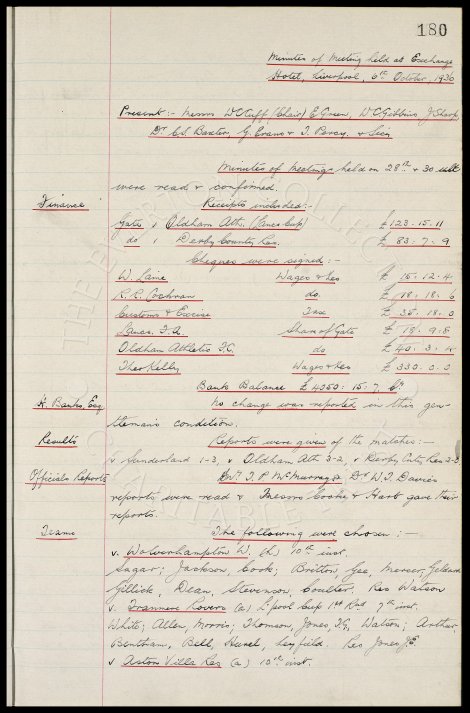 180
Minutes of Meeting held at Exchange
Hotel, Liverpool, 6th October, 1936
Present:- Messrs W.C. Cuff (Chair) E. Green, W.C. Gibbins, J. Sharp,
Dr. C.S. Baxter, G. Evans & T. Percy. & Secy
Minutes of Meetings held on 28th & 30 ult
were read & confirmed.
Finance
Receipts included:-
Gate, Oldham Ath. (Lancs Cup) £123.15.11
do, Derby County Res. £83.7.9
Cheques were signed:-
W. Laine Wages &c £15.12.4
R.R. Cochran do. £18.18.6
Customs & Excise Tax £35.18.0
Lancs. F.A. Share of Gate £18.9.8
Oldham Athletic F.C. do £40.3.
Theo Kelly Wages &c £330.0.0
Bank Balance £4050.15.7. Cr
H. Banks, Esq.
No change was reported in this gen-
tleman's condition.
Results
Reports were given of the matches:-
v Sunderland 1-3, v Oldham Ath 3-2, v Derby Cnty Res 2-3
Officials Reports
T.P. McMurray & Dr W.J. Davies
reports were read & Messrs Cooke & Hart gave their
reports.
Teams
The following were chosen:-
v. Wolverhampton W. (h) 10th inst.
Sagar; Jackson, Cook; Britton, Gee, Mercer; Geldard
Gillick, Dean, Stevenson, Coulter. Res Watson
v. Tranmere Rovers (a) L'pool Cup 1st Rnd 7th inst.
White; Allen, Morris; Thomson, Jones, T.G., Watson; Arthur,
Bentham, Bell, Hurel, Leyfield. Res Jones J.E.
v Aston Villa Res (a) 10th inst.